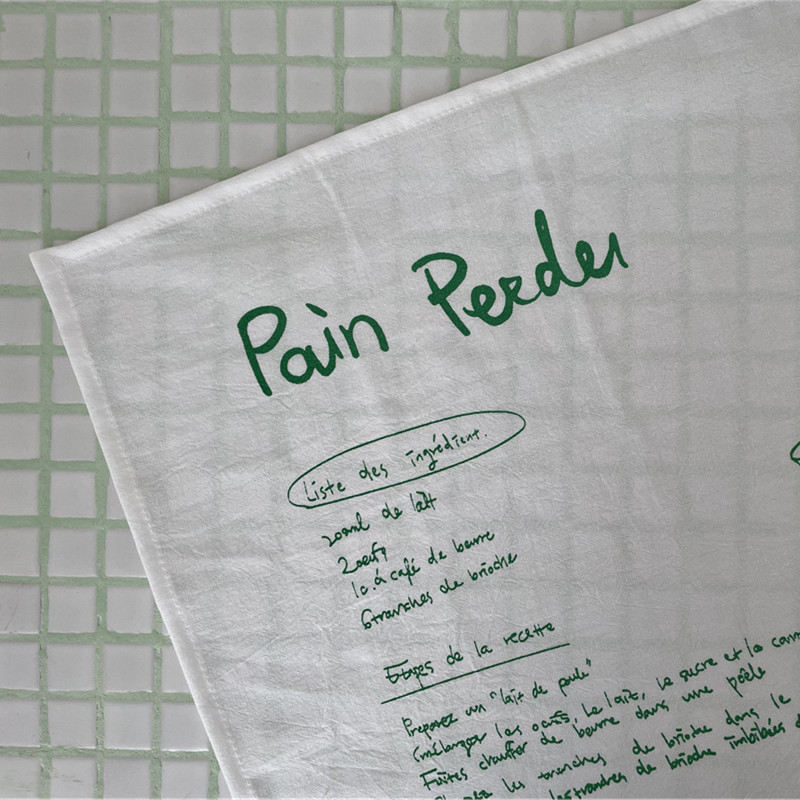 Pain Perdu
Liste des ingrédient.
200ml de lait
2 oeufs
1 c. à café de beurre
6 tranches de brioche
Etapes de la recette
Preparez un "lait de poule"
(mélanger les oeufs, le lait, le sucre et la cann
Faites chauffer de beurre dans une poêle
les tranches de brioche dans le
les tranches de brioche imbibées d